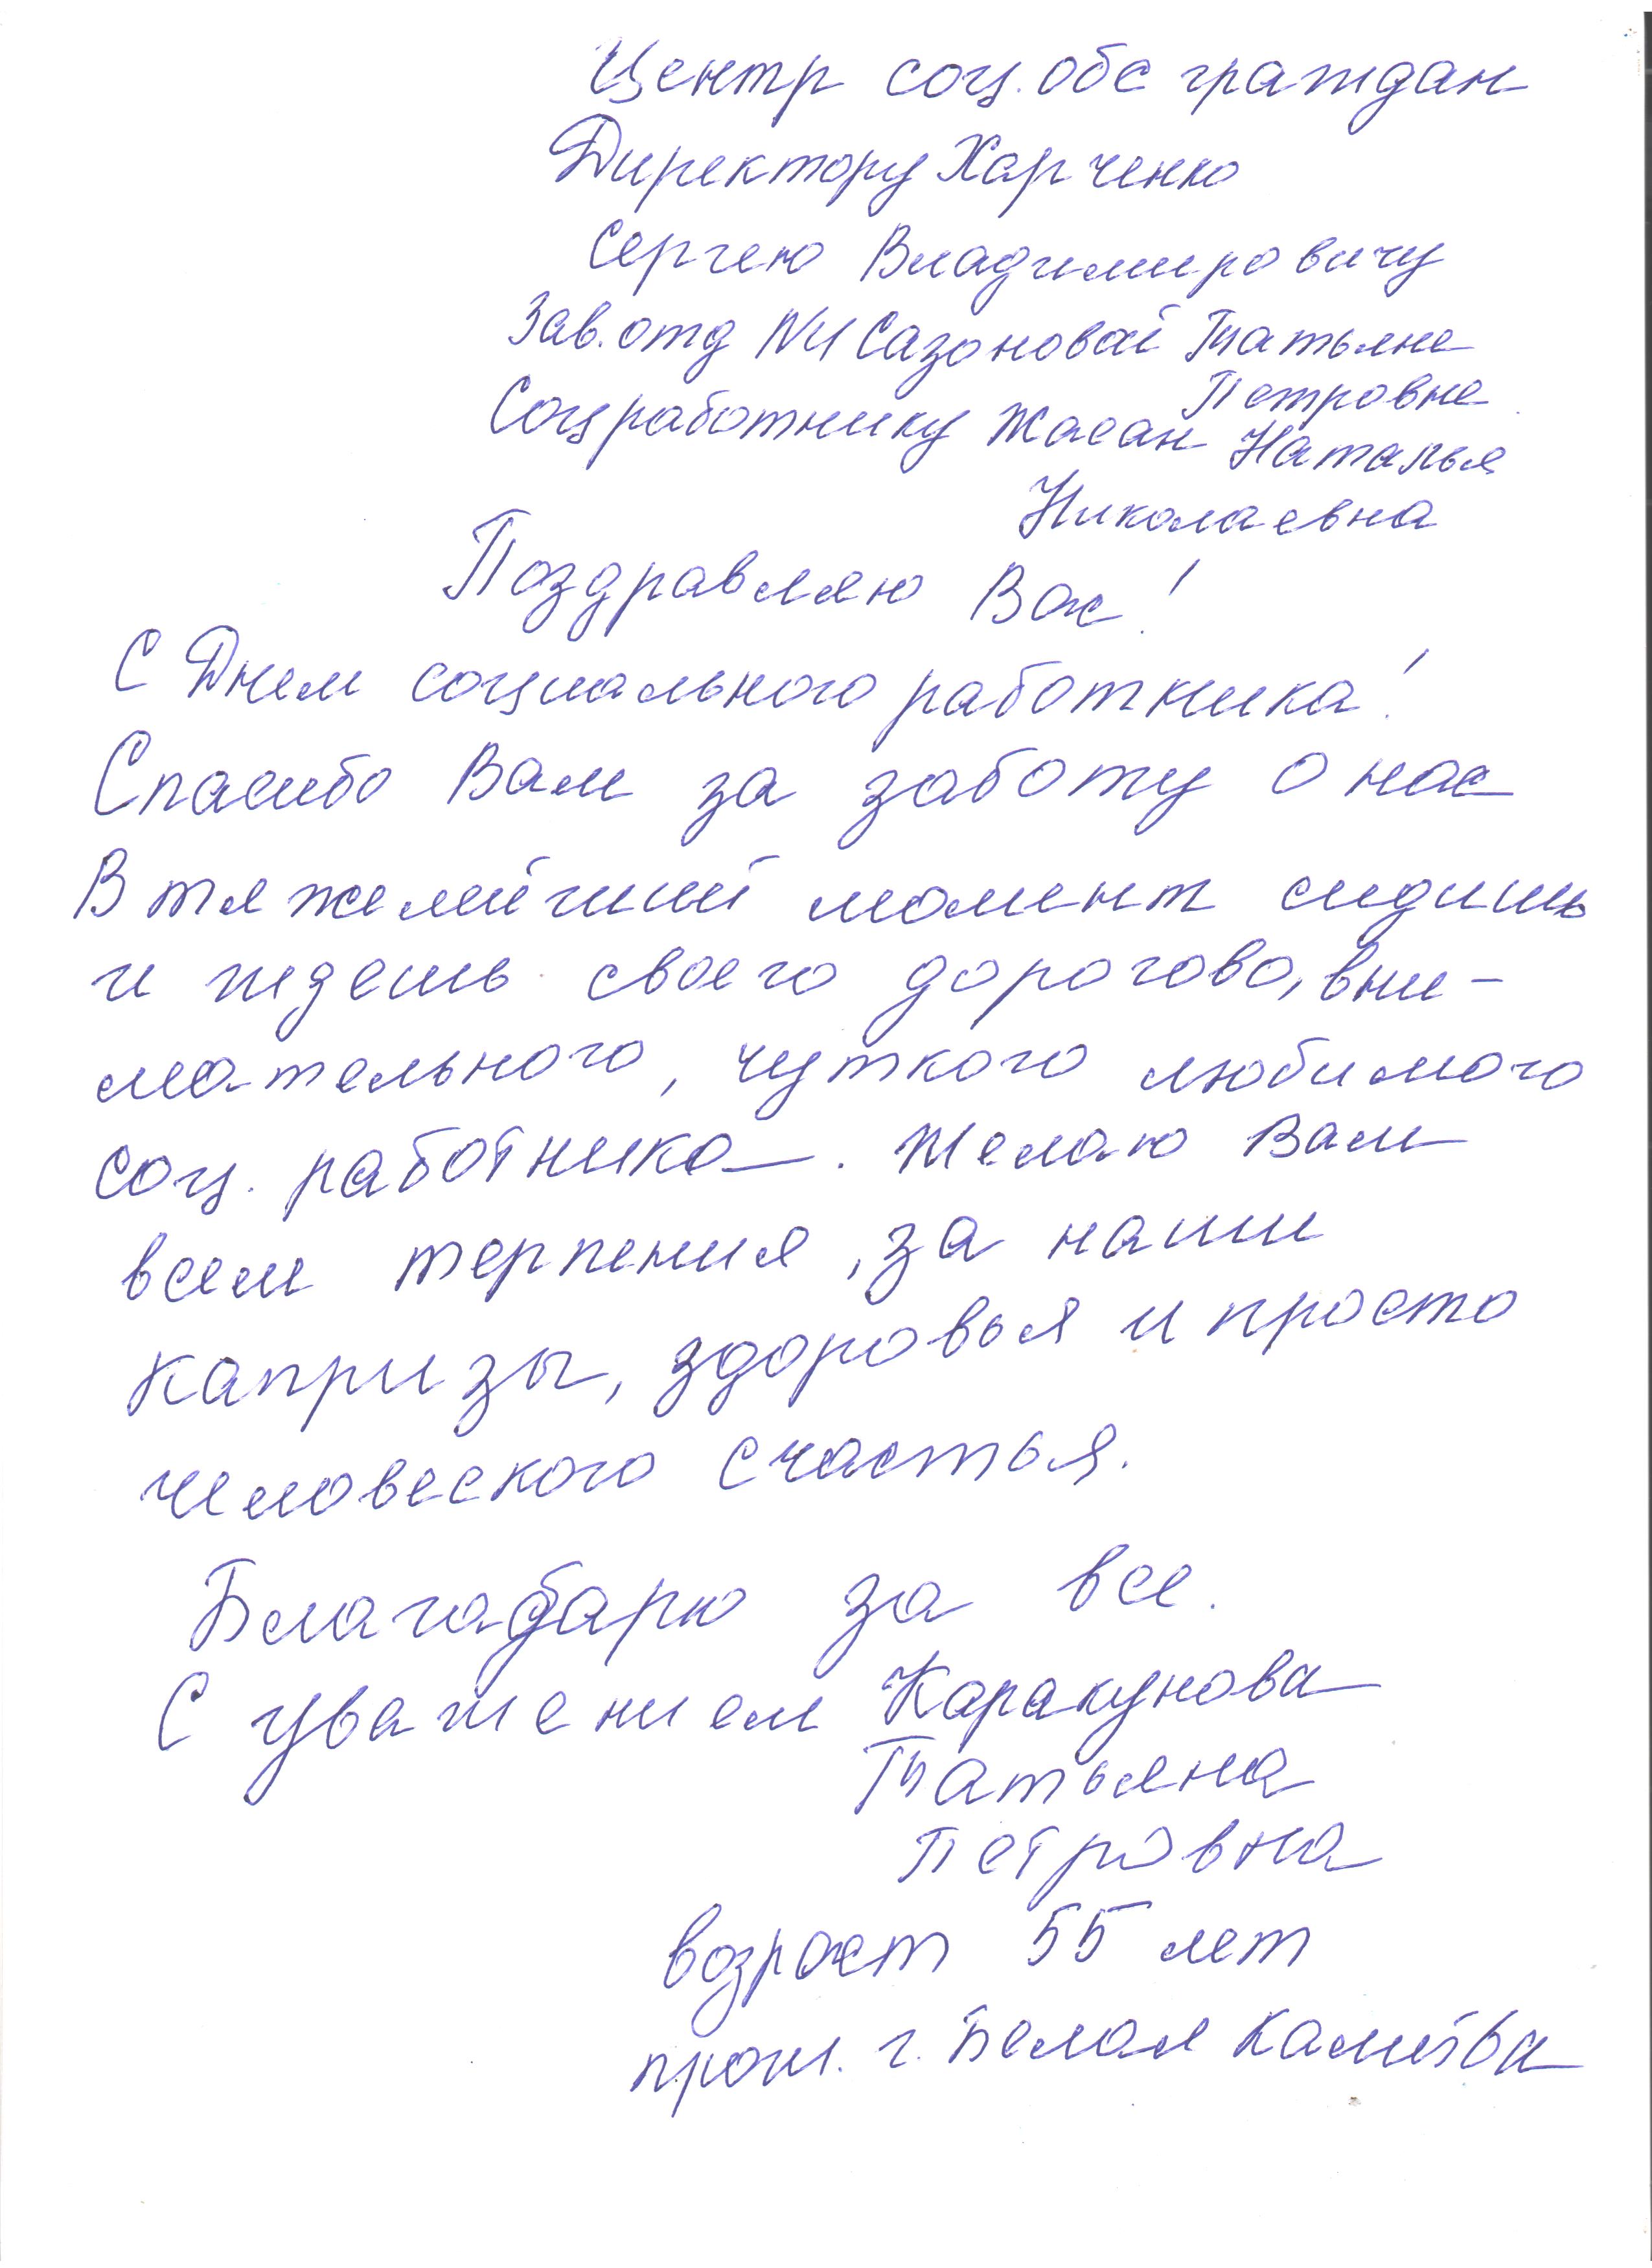 Центр соц. обс граждан
Директору Харченко
Сергею Владимировичу
Зав. отд №1 Сазоновой Татьяне
Петровне
Соцработнику Жасан Наталья
Николаевна
Поздравляю Вас!
С Днем социального работника!
Спасибо Вам за заботу о нас
В тяжелейший момент сидишь
и ждешь своего дорогово, вни-
мательного, чуткого любимого
соц. работника. Желаю Вам
всем терпения, за наши
капризы, здоровья и просто
человеского счастья.
Благадарю за все.
С уважением Каракунова
Татьяна
Петровна
возраст 55 лет
прож. г. Белая Калитва